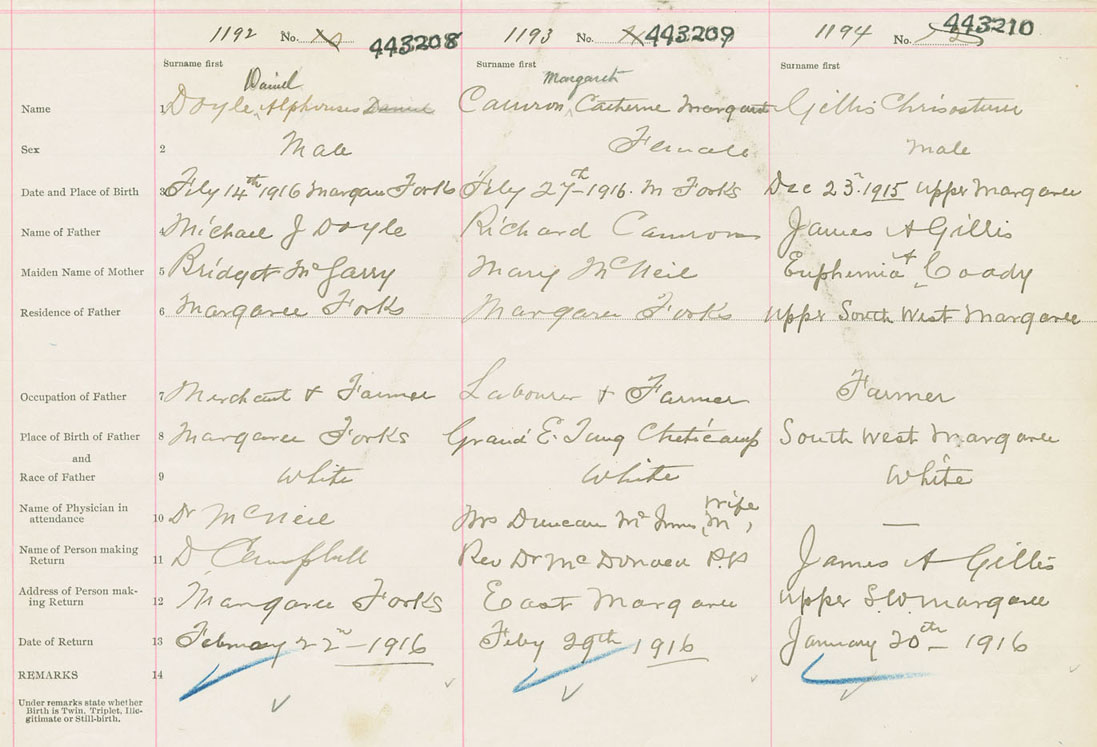 1192 No. 443208 1193 No. 443209 1194 No. 443210
Surname first Surname first Surname first
Daniel Margaret
Name 1 Doyle, Alphonses Daniel Camron, Catherine Margaret Gillis Chrisostum
Sex 2 Male Female male
Date and Place of Birth 3 Feby 14th 1916 Margaree Forks Feby 27th 1916. M Forks Dec 23rd 1915 Upper Margaree
Name of Father 4 Michael J Doyle Richard Camron James A Gillis
Maiden Name of Mother 5 Bridget McGarry Mary McNeil Euphemia A Coady
Residence of Father 6 Margaree Forks Margaree Forks Upper South West Margaree
Occupation of Father 7 Merchant + Farmer Labourer + Farmer Farmer
Place of Birth of Father 8 Margaree Forks Grand E. Tang Cheticamp South West Margaree
and
Race of Father 9 White White White
Name of Physician in
attendance 10 Dr McNeil Mrs Duncan McInnis, M Wife, —
Name of Person making
Return 11 D Campbell Rev Dr McDonald P.P James A Gillis
Address of Person mak-
ing Return 12 Margaree Forks East Margaree Upper S W Margaree
Date of Return 13 February 22nd – 1916 Feby 29th 1916 January 20th – 1916
REMARKS 14
Under remarks state whether
Birth is Twin, Triplet, Ille-
gitimate or Still-birth.